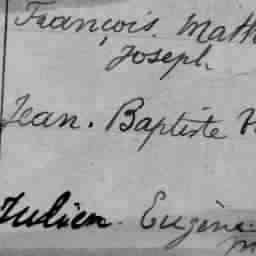 François. Math
Joseph
Jean. Baptiste
Julien. Eugène.